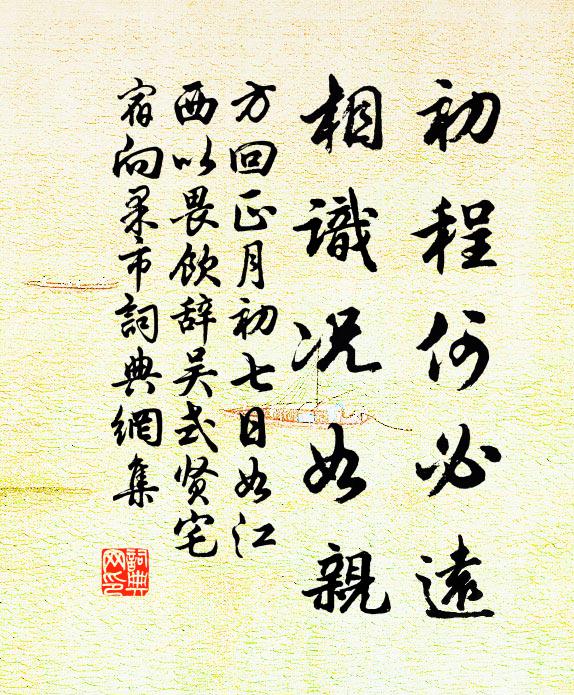 初程何必遠
相識況如親
方回正月初七日如江
西以畏飲辞吳式贤宅
宿向杲市詞典網集
詞典
网印